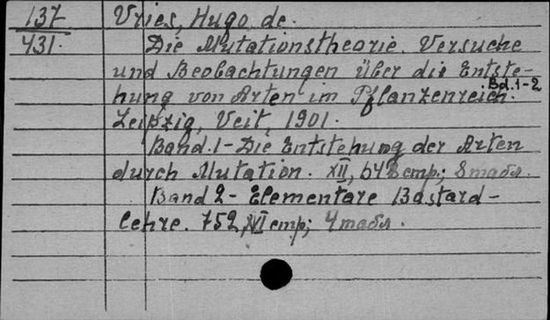 137
431.
Vries, Hugo de.
Die Mutationstheorie. Versuche
und Beobachtungen über die Entste-
hung von Arten im Pflanzenreich. Bd. 1-2
Leipzig, Veit, 1901.
Band. 1 - Die Entstehung der Arten
durch Mutation. XII, 648 стр; 8 табл.
Band 2 - Elementare Bastard-
lehre. 752, VI стр; 4 табл.